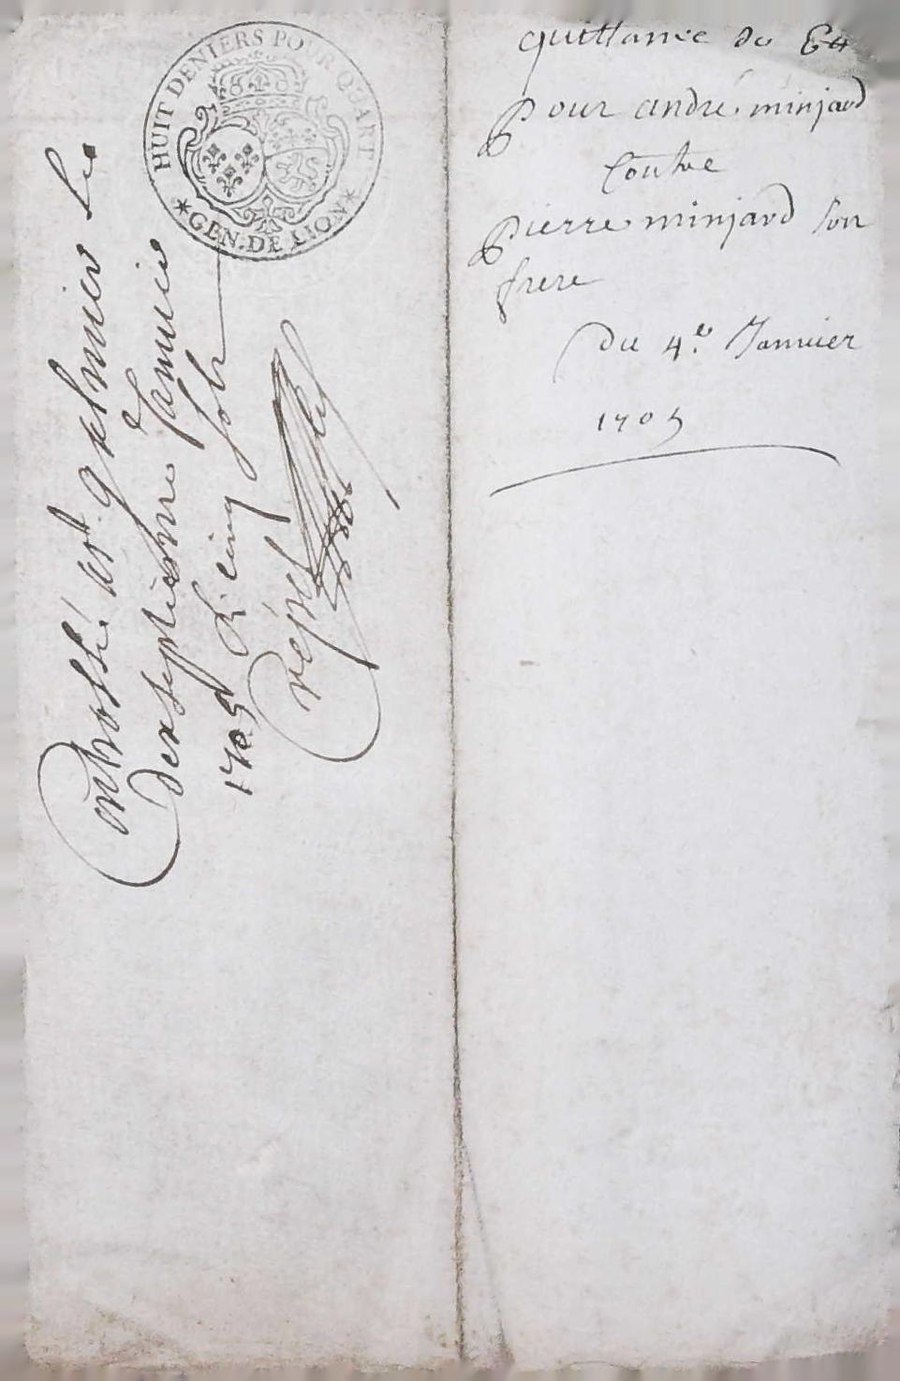 HUIT DENIERS POUR QUART
GEN. DE LION
Controllé a St galmier Le
dixseptiesme Januier
1705 R. cinq sols
quittance de 64
pour andré minjard
Contre
pierre minjard son
frere
du 4.e Januier
1705